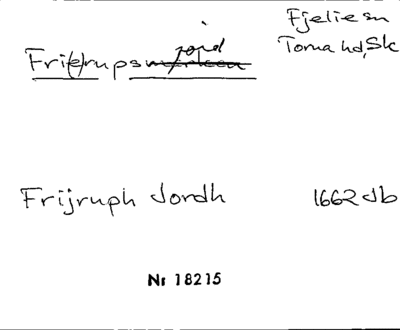 Fjelie sn
Torna hd, Sk
Fri(e)rupsmarken jord
Frijruph Jordh 1662 Jb
Nr 18215